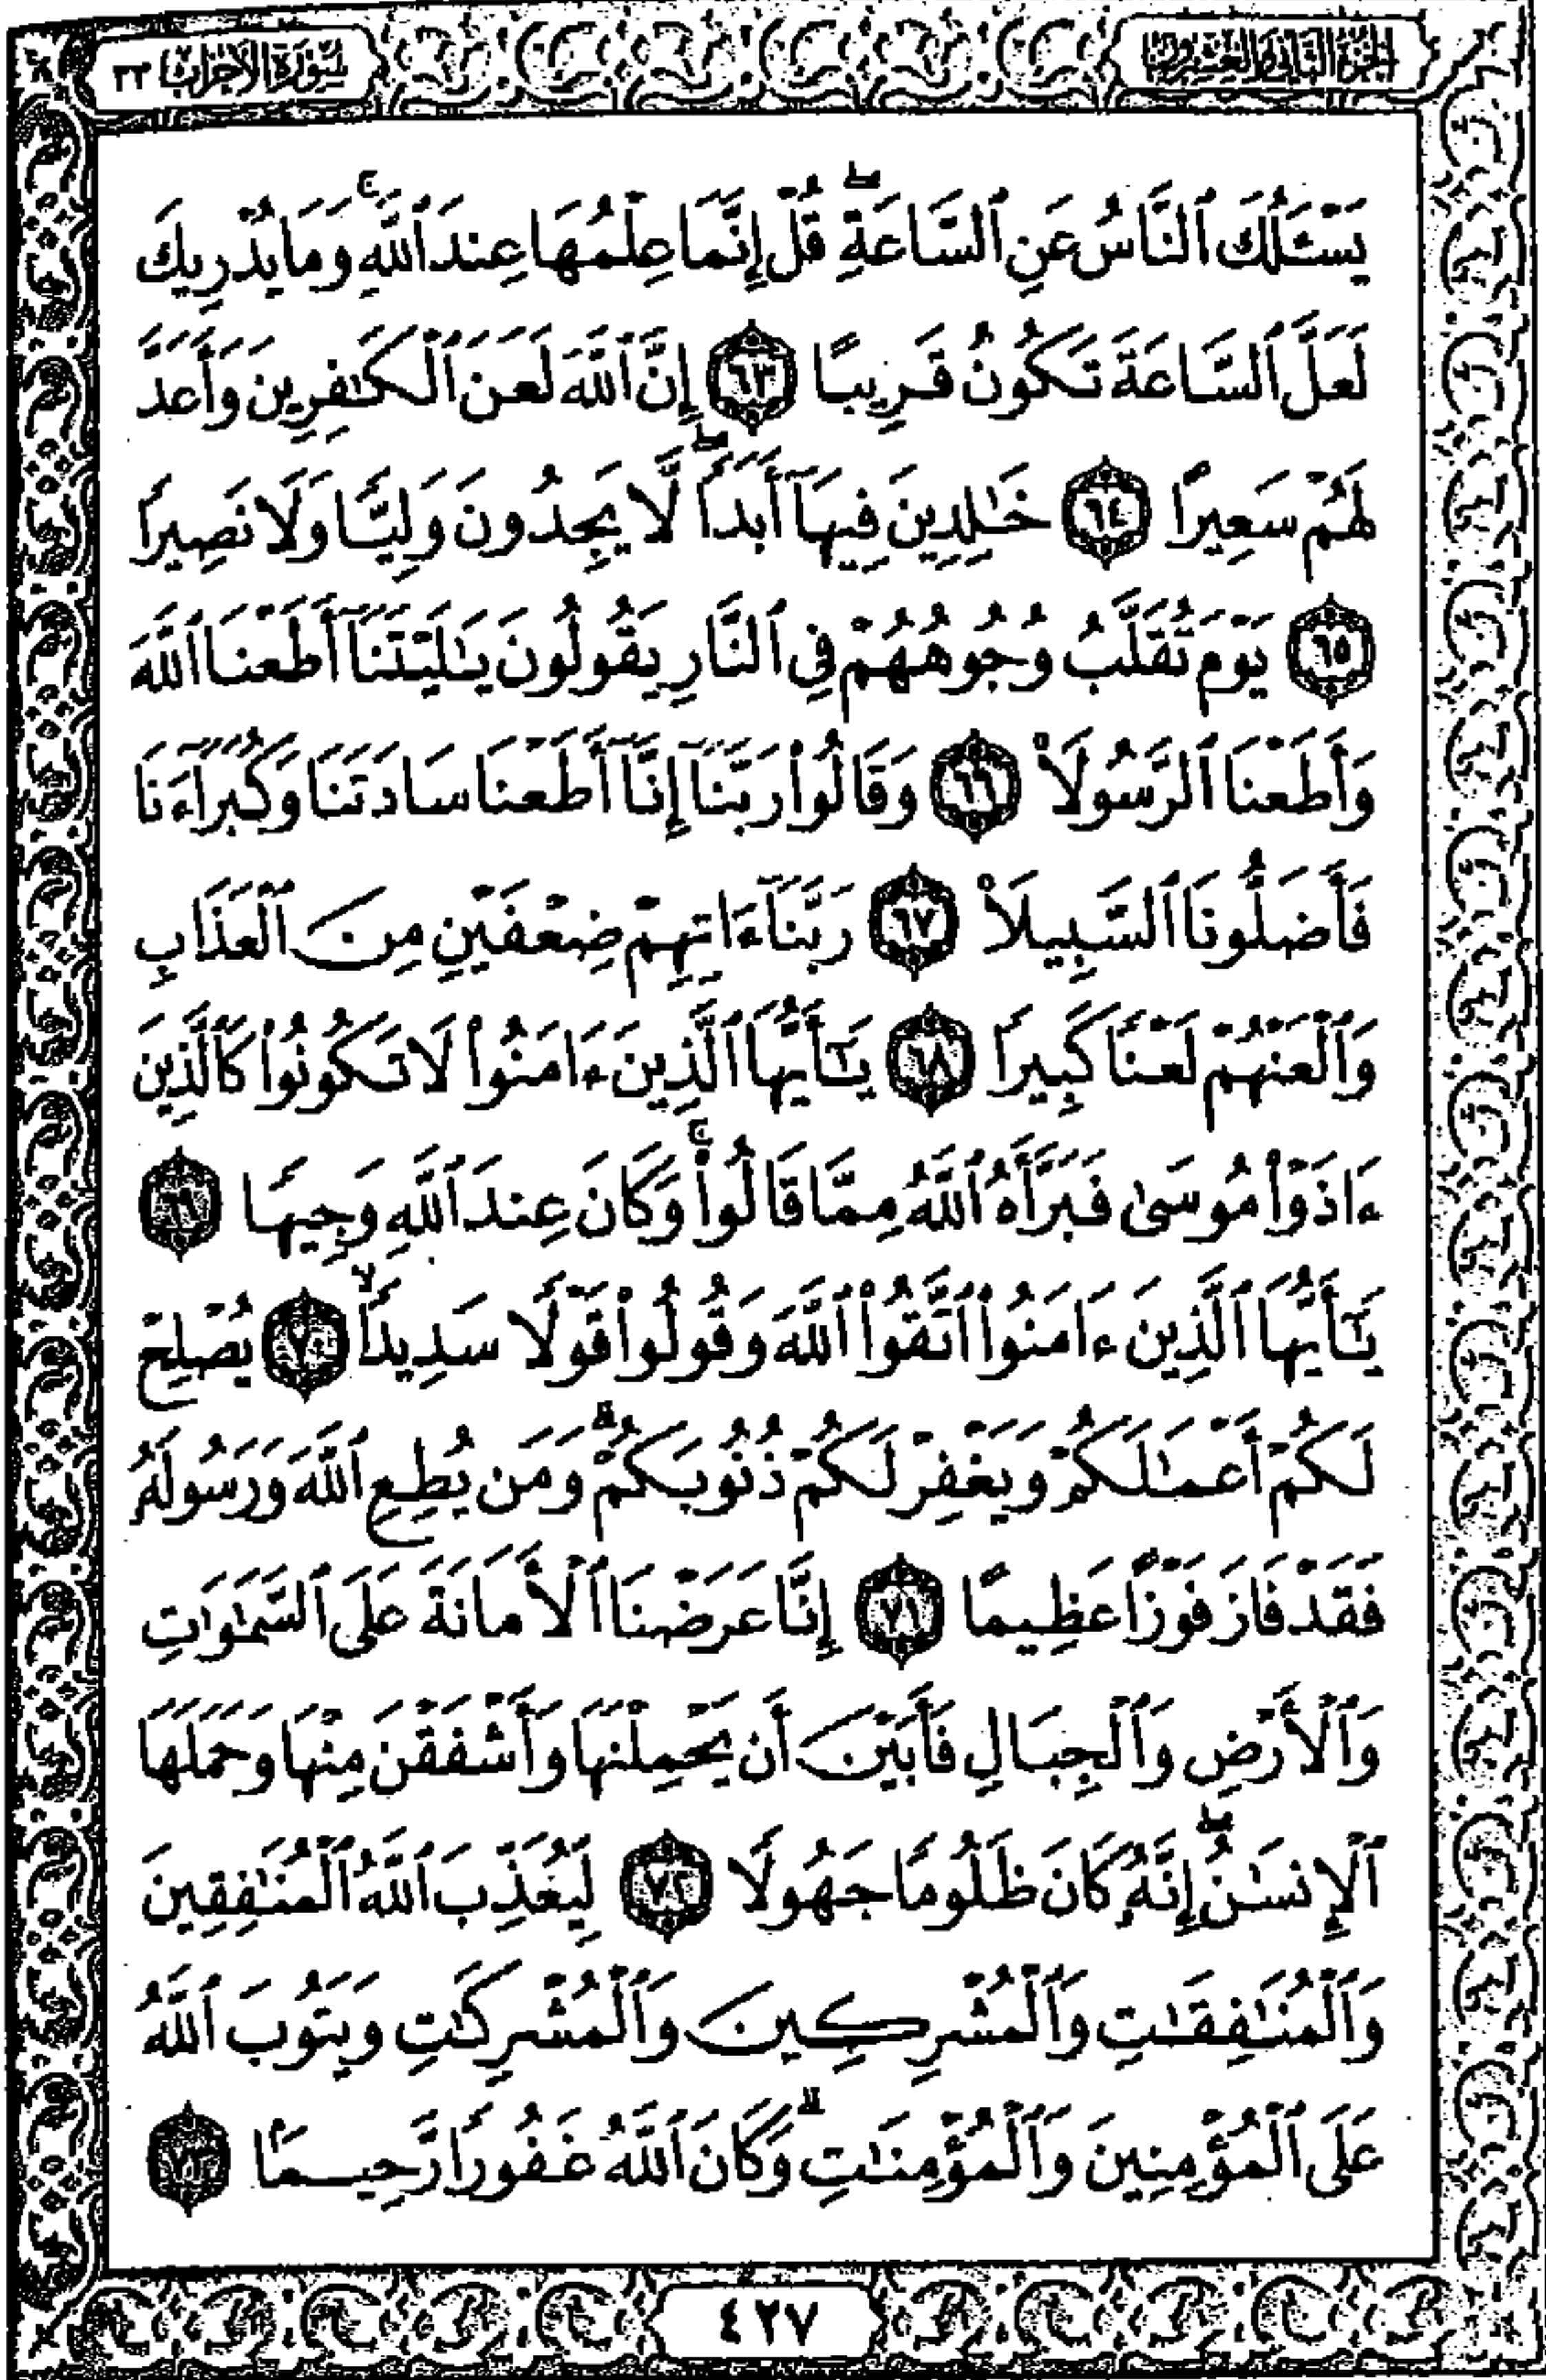 الجزء الثاني والعشرون
سورة الأحزاب ٣٣
يَسْـَٔلُكَ ٱلنَّاسُ عَنِ ٱلسَّاعَةِۖ قُلْ إِنَّمَا عِلْمُهَا عِندَ ٱللَّهِۚ وَمَا يُدْرِيكَ
لَعَلَّ ٱلسَّاعَةَ تَكُونُ قَرِيبًا ٦٣ إِنَّ ٱللَّهَ لَعَنَ ٱلْكَـٰفِرِينَ وَأَعَدَّ
لَهُمْ سَعِيرًا ٦٤ خَـٰلِدِينَ فِيهَآ أَبَدًاۖ لَّا يَجِدُونَ وَلِيًّا وَلَا نَصِيرًا
٦٥ يَوْمَ تُقَلَّبُ وُجُوهُهُمْ فِى ٱلنَّارِ يَقُولُونَ يَـٰلَيْتَنَآ أَطَعْنَا ٱللَّهَ
وَأَطَعْنَا ٱلرَّسُولَا۠ ٦٦ وَقَالُوا۟ رَبَّنَآ إِنَّآ أَطَعْنَا سَادَتَنَا وَكُبَرَآءَنَا
فَأَضَلُّونَا ٱلسَّبِيلَا۠ ٦٧ رَبَّنَآ ءَاتِهِمْ ضِعْفَيْنِ مِنَ ٱلْعَذَابِ
وَٱلْعَنْهُمْ لَعْنًا كَبِيرًا ٦٨ يَـٰٓأَيُّهَا ٱلَّذِينَ ءَامَنُوا۟ لَا تَكُونُوا۟ كَٱلَّذِينَ
ءَاذَوْا۟ مُوسَىٰ فَبَرَّأَهُ ٱللَّهُ مِمَّا قَالُوا۟ۚ وَكَانَ عِندَ ٱللَّهِ وَجِيهًا ٦٩
يَـٰٓأَيُّهَا ٱلَّذِينَ ءَامَنُوا۟ ٱتَّقُوا۟ ٱللَّهَ وَقُولُوا۟ قَوْلًا سَدِيدًاۙ ٧٠ يُصْلِحْ
لَكُمْ أَعْمَـٰلَكُمْ وَيَغْفِرْ لَكُمْ ذُنُوبَكُمْۗ وَمَن يُطِعِ ٱللَّهَ وَرَسُولَهُۥ
فَقَدْ فَازَ فَوْزًا عَظِيمًا ٧١ إِنَّا عَرَضْنَا ٱلْأَمَانَةَ عَلَى ٱلسَّمَـٰوَٰتِ
وَٱلْأَرْضِ وَٱلْجِبَالِ فَأَبَيْنَ أَن يَحْمِلْنَهَا وَأَشْفَقْنَ مِنْهَا وَحَمَلَهَا
ٱلْإِنسَـٰنُۖ إِنَّهُۥ كَانَ ظَلُومًا جَهُولًا ٧٢ لِّيُعَذِّبَ ٱللَّهُ ٱلْمُنَـٰفِقِينَ
وَٱلْمُنَـٰفِقَـٰتِ وَٱلْمُشْرِكِينَ وَٱلْمُشْرِكَـٰتِ وَيَتُوبَ ٱللَّهُ
عَلَى ٱلْمُؤْمِنِينَ وَٱلْمُؤْمِنَـٰتِۗ وَكَانَ ٱللَّهُ غَفُورًا رَّحِيمًۢا ٧٣
٤٢٧